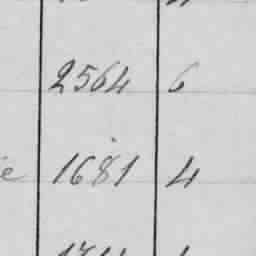 2564 6
e 1681 4